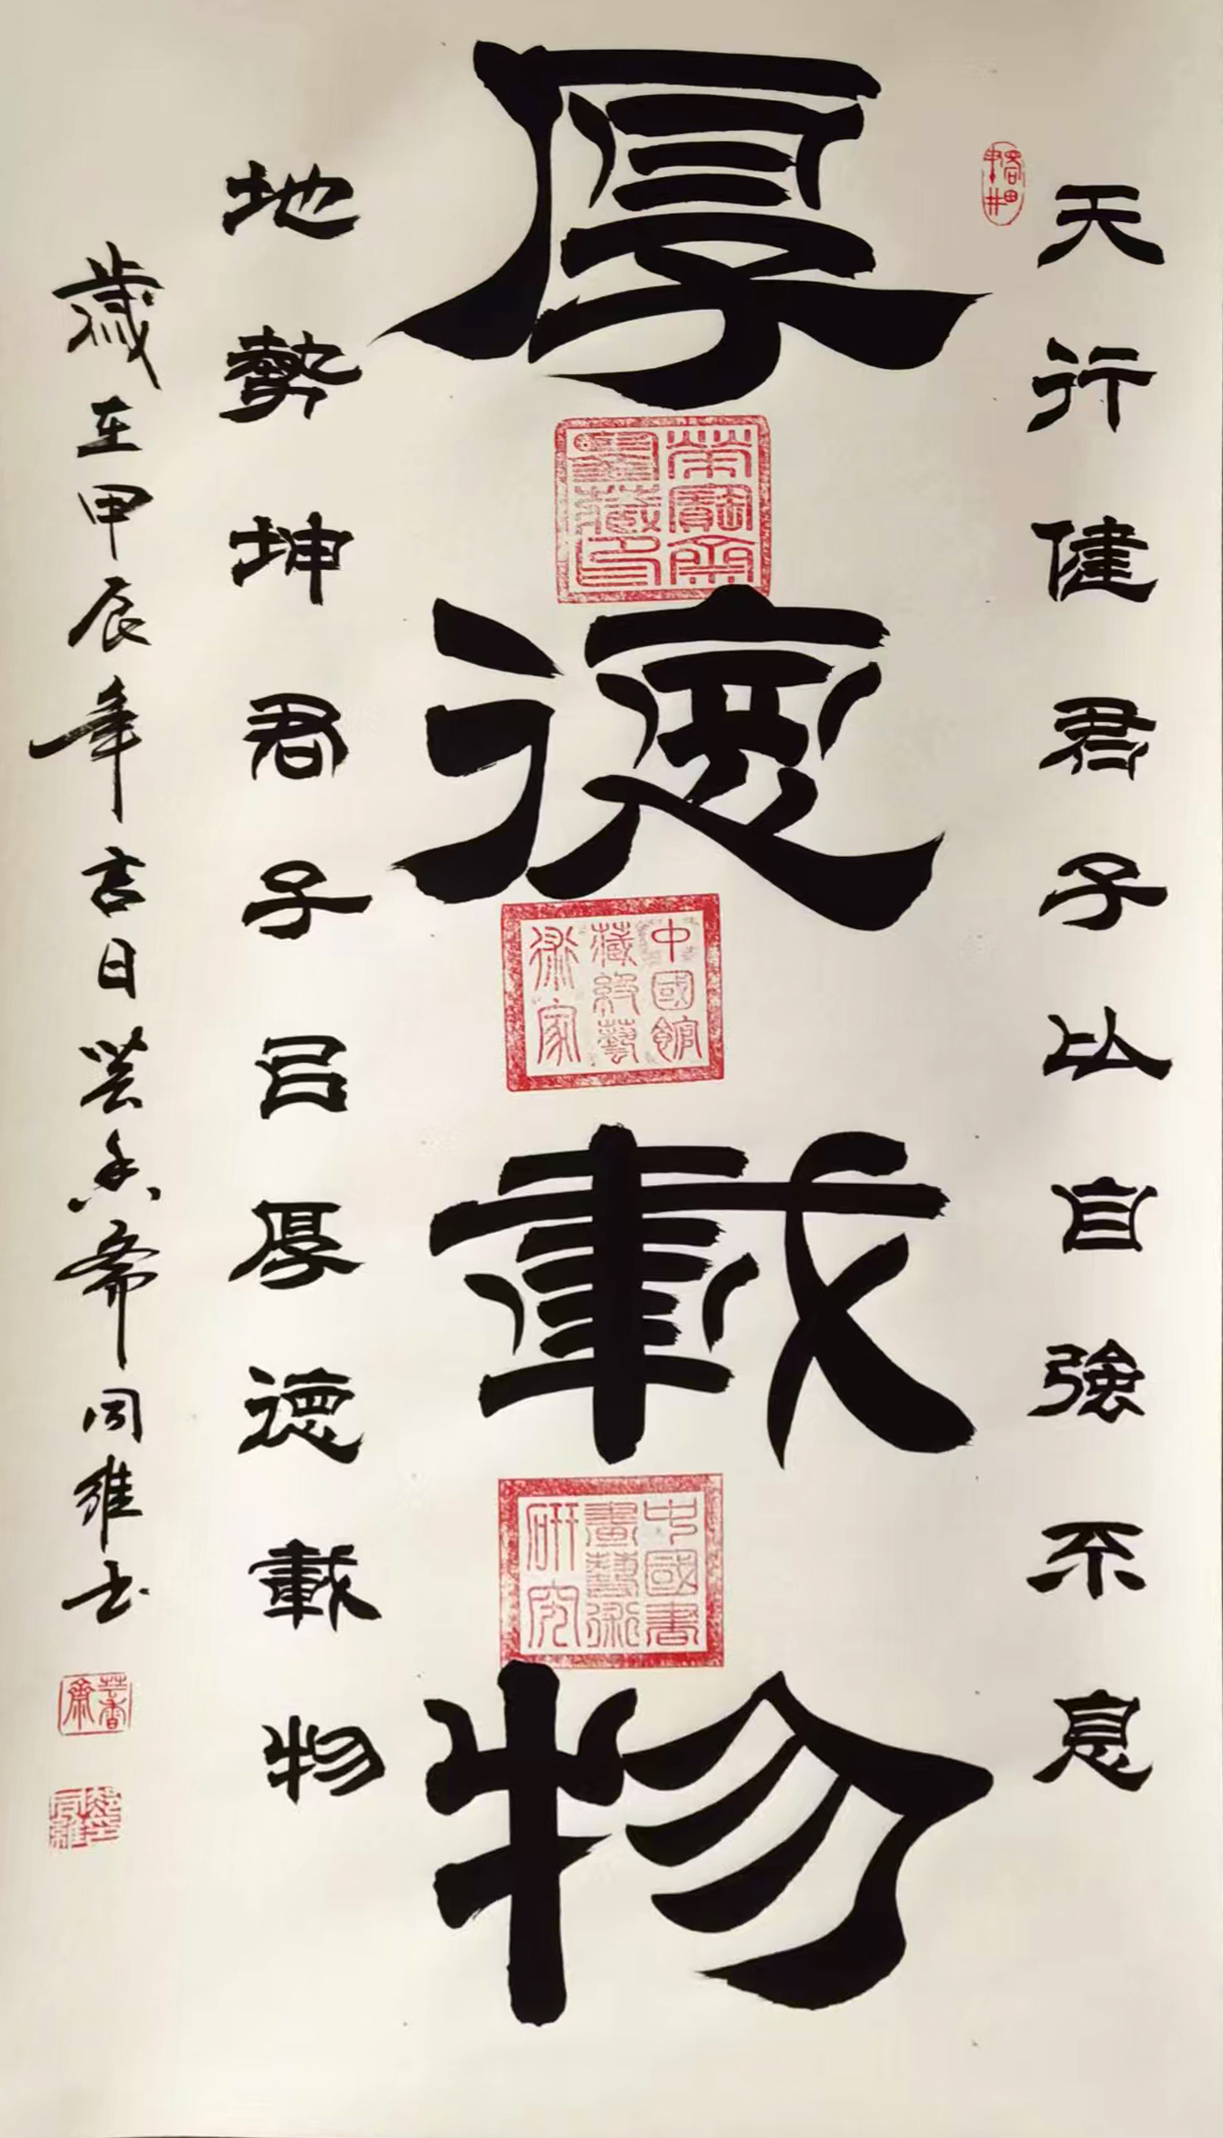 天行健君子以自強不息
厚德載物
榮寶齋藏印
中國館藏級藝術家
中國書畫藝術研究
地勢坤君子㠯厚德載物
歲在甲辰年吉日芸香斋維书
芸香齋